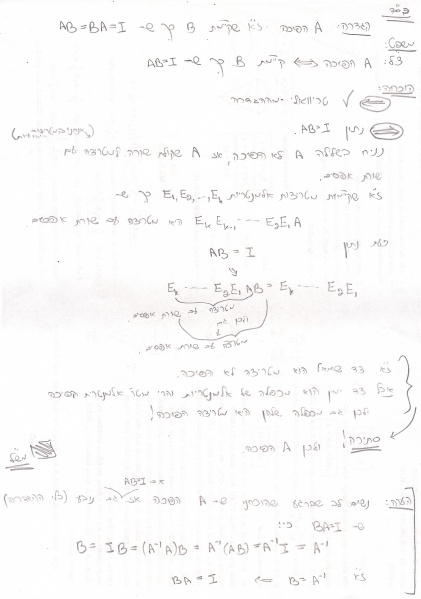 בס"ד
הגדרה: A הפיכה. ז"א שקיימת B כך ש- AB=BA=I
משפט:
צ"ל: A הפיכה ⟺ קיימת B כך ש- AB=I
הוכחה:
⟹ ✓ טריוויאלי מההגדרה
⟸ נתון AB=I.
נניח בשלילה A לא הפיכה, אז A שקולת שורה למטריצה עם
שורת אפסים.
ז"א שקיימות מטריצות אלמנטריות E₁,E₂,...,Eₖ כך ש-
Eₖ Eₖ₋₁ ····· E₂E₁A היא מטריצה עם שורת אפסים
כעת נתון
AB = I
⇓
Eₖ ····· E₂E₁AB = Eₖ ····· E₂E₁
מטריצה עם שורת אפסים
ולכן גם
מטריצה עם שורת אפסים.
ז"א צד שמאל הוא מטריצה לא הפיכה.
אבל צד ימין הוא מכפלה של אלמנטריות והרי מטר' אלמנטרית הפיכה
ולכן גם מכפלה שלהן היא מטריצה הפיכה!
סתירה! ולכן A הפיכה.
מש"ל
AB=I
הערה: נשים לב שברגע שהוכחנו ש- A הפיכה אז גם נובע (לפי ההגדרה)
ש- BA=I כי:
B = IB = (A⁻¹A)B = A⁻¹(AB) = A⁻¹I = A⁻¹
ז"א B=A⁻¹ ⟸ BA = I